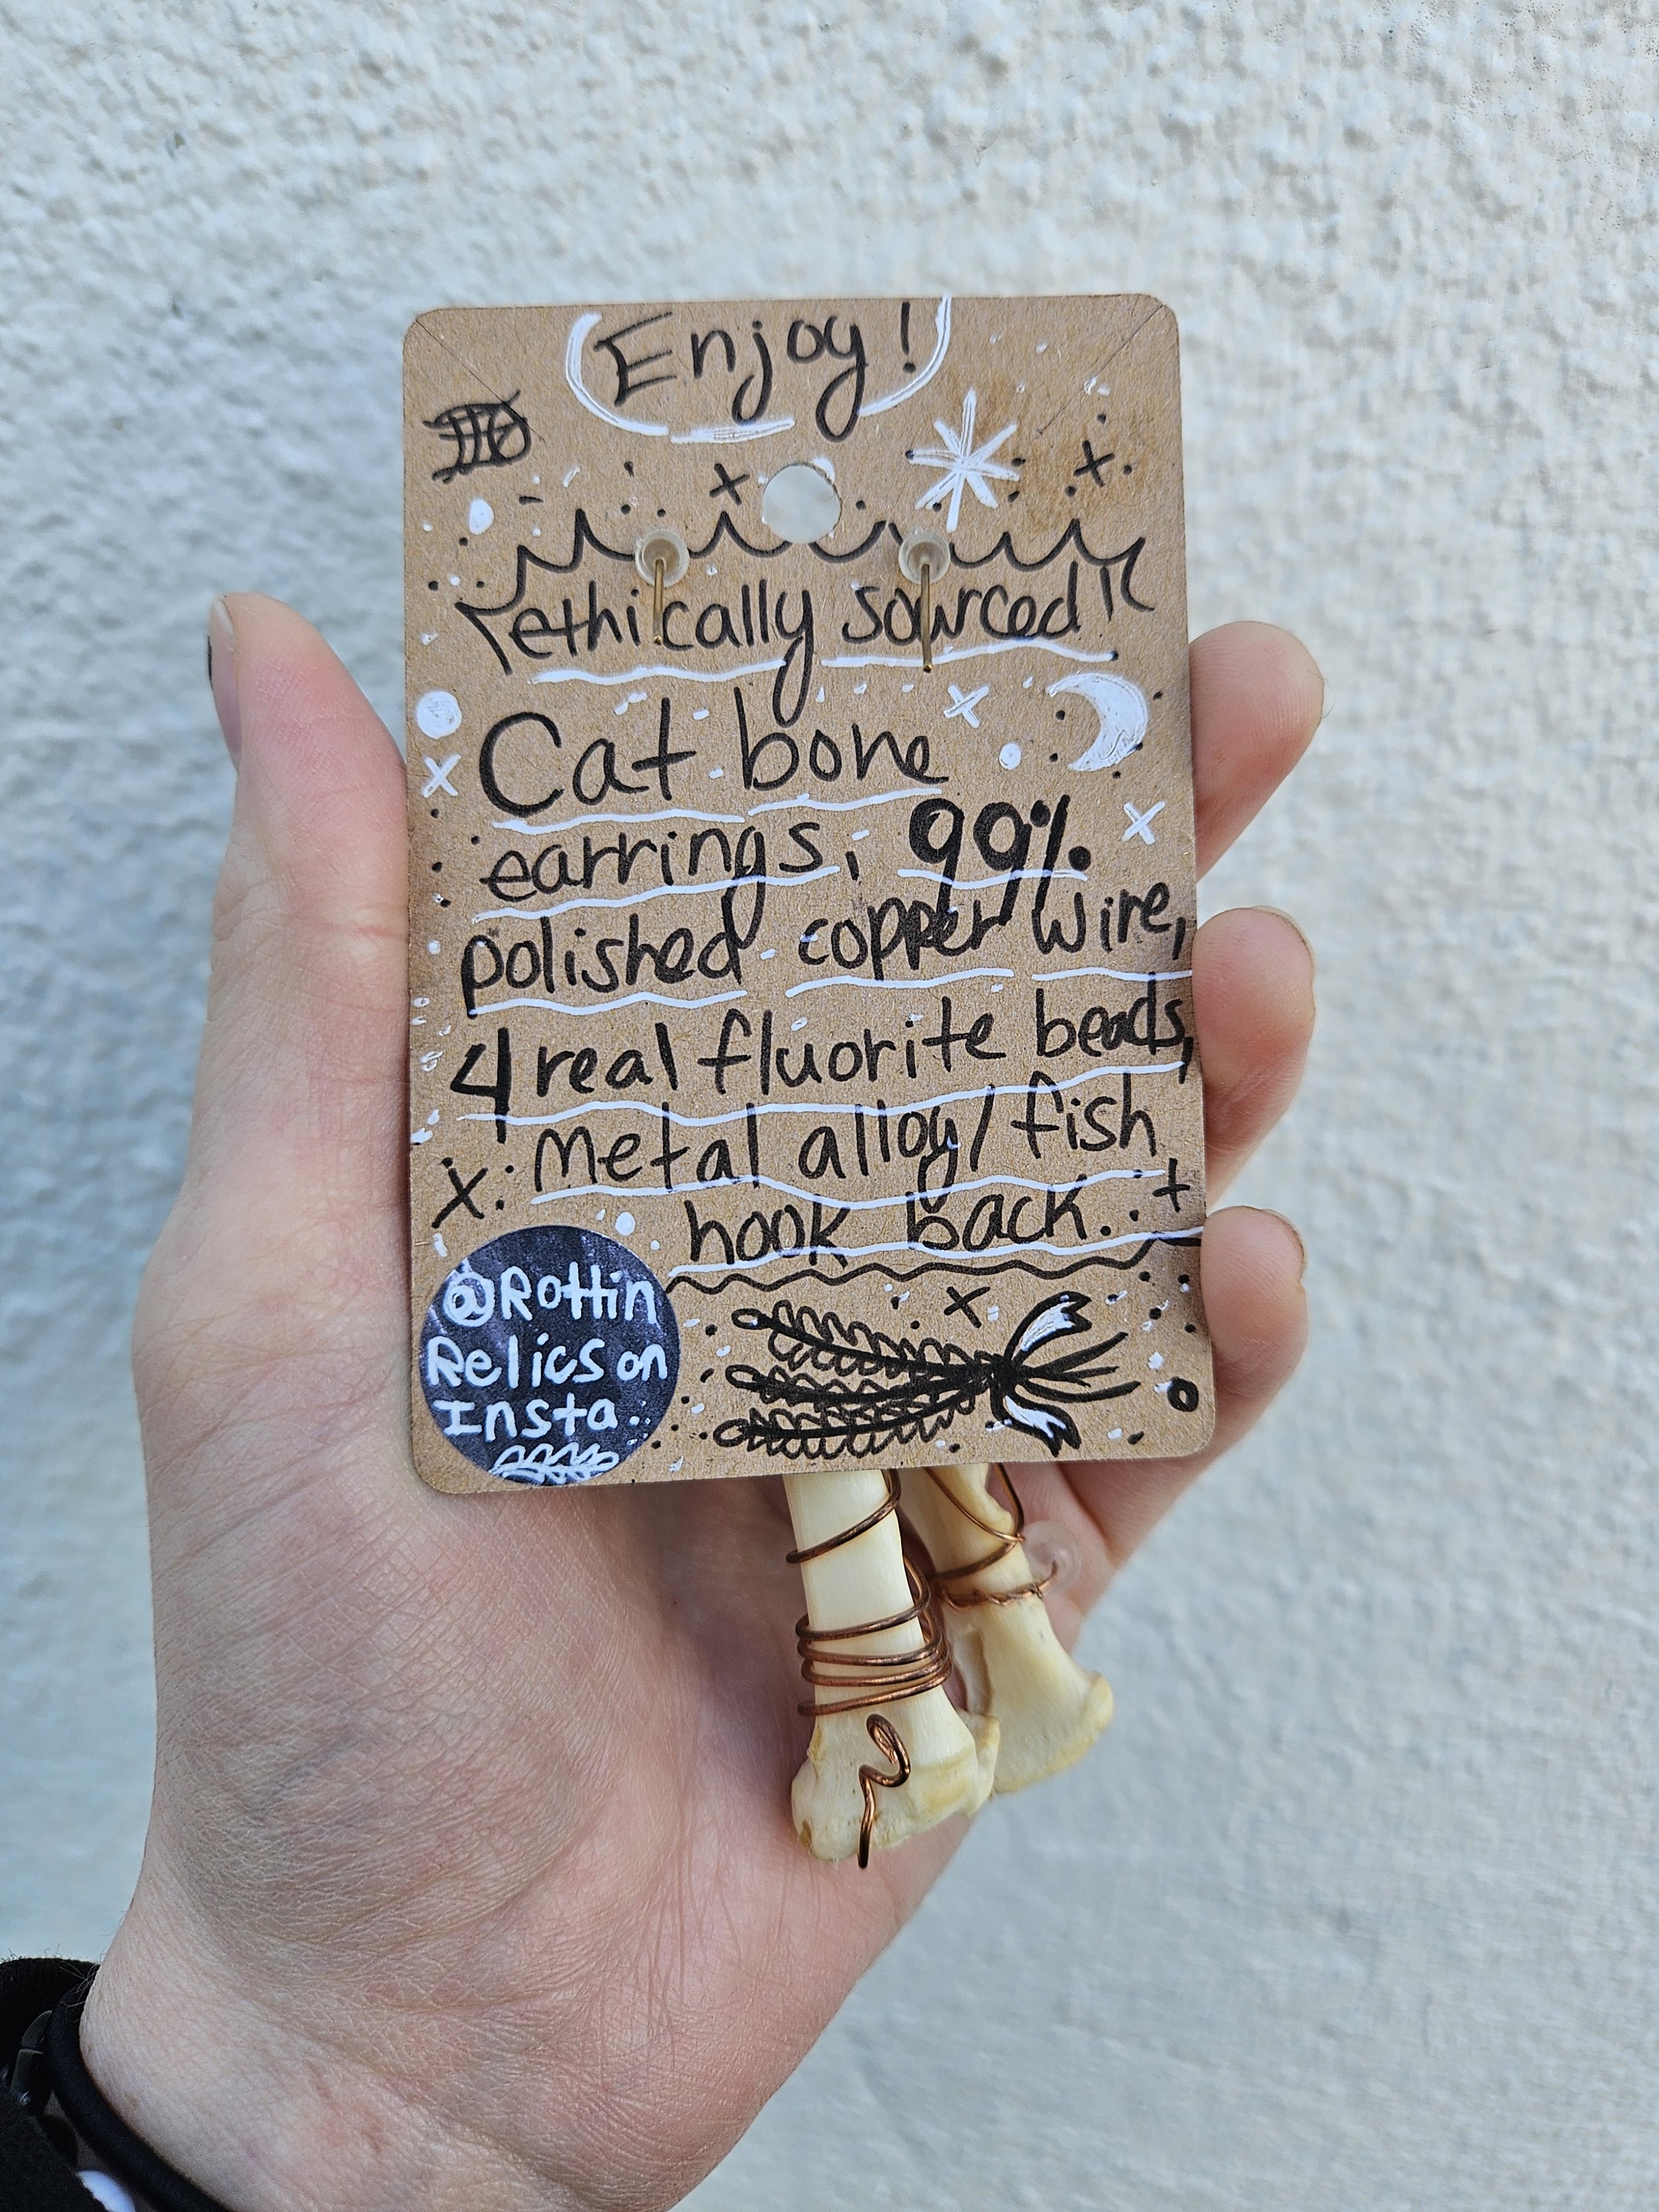 Enjoy!
ethically sourced!
Cat bone
earrings, 99%
polished copper wire,
4 real fluorite beads,
Metal alloy/fish
hook back.
@Rottin
Relics on
Insta